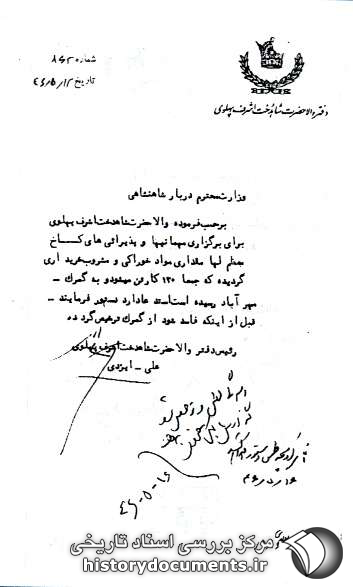 شماره ۸۶۳
تاریخ ۴۶/۵/۱۲
دفتر والاحضرت شاهدخت اشرف پهلوی
وزارت محترم دربار شاهنشاهی
برحسب فرموده والاحضرت شاهدخت اشرف پهلوی
برای برگزاری مهمانیها و پذیرائی های کاخ
معظم لها مقداری مواد خوراکی و مشروب خریداری
گردیده که جمعا ۱۳۰ کارتن میشود به گمرک -
مهرآباد رسیده است استدعا دارد دستور فرمایند -
قبل از اینکه فاسد شود از گمرک ترخیص گردد
رئیس دفتر والاحضرت شاهدخت اشرف پهلوی
علی - ایزدی
۴۶-۵-۱۶
مرکز بررسی اسناد تاریخی
historydocuments.ir